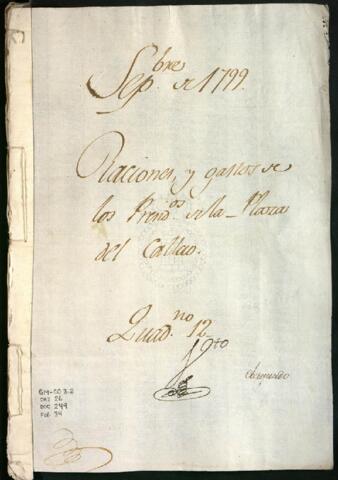 Sep.bre de 1799.
Raciones, y gastos de
los Presid.os de la Plaza
del Callao.
Quad.no 12
GM-CO 3.2
CAJ 26
DOC 249
FOL 34